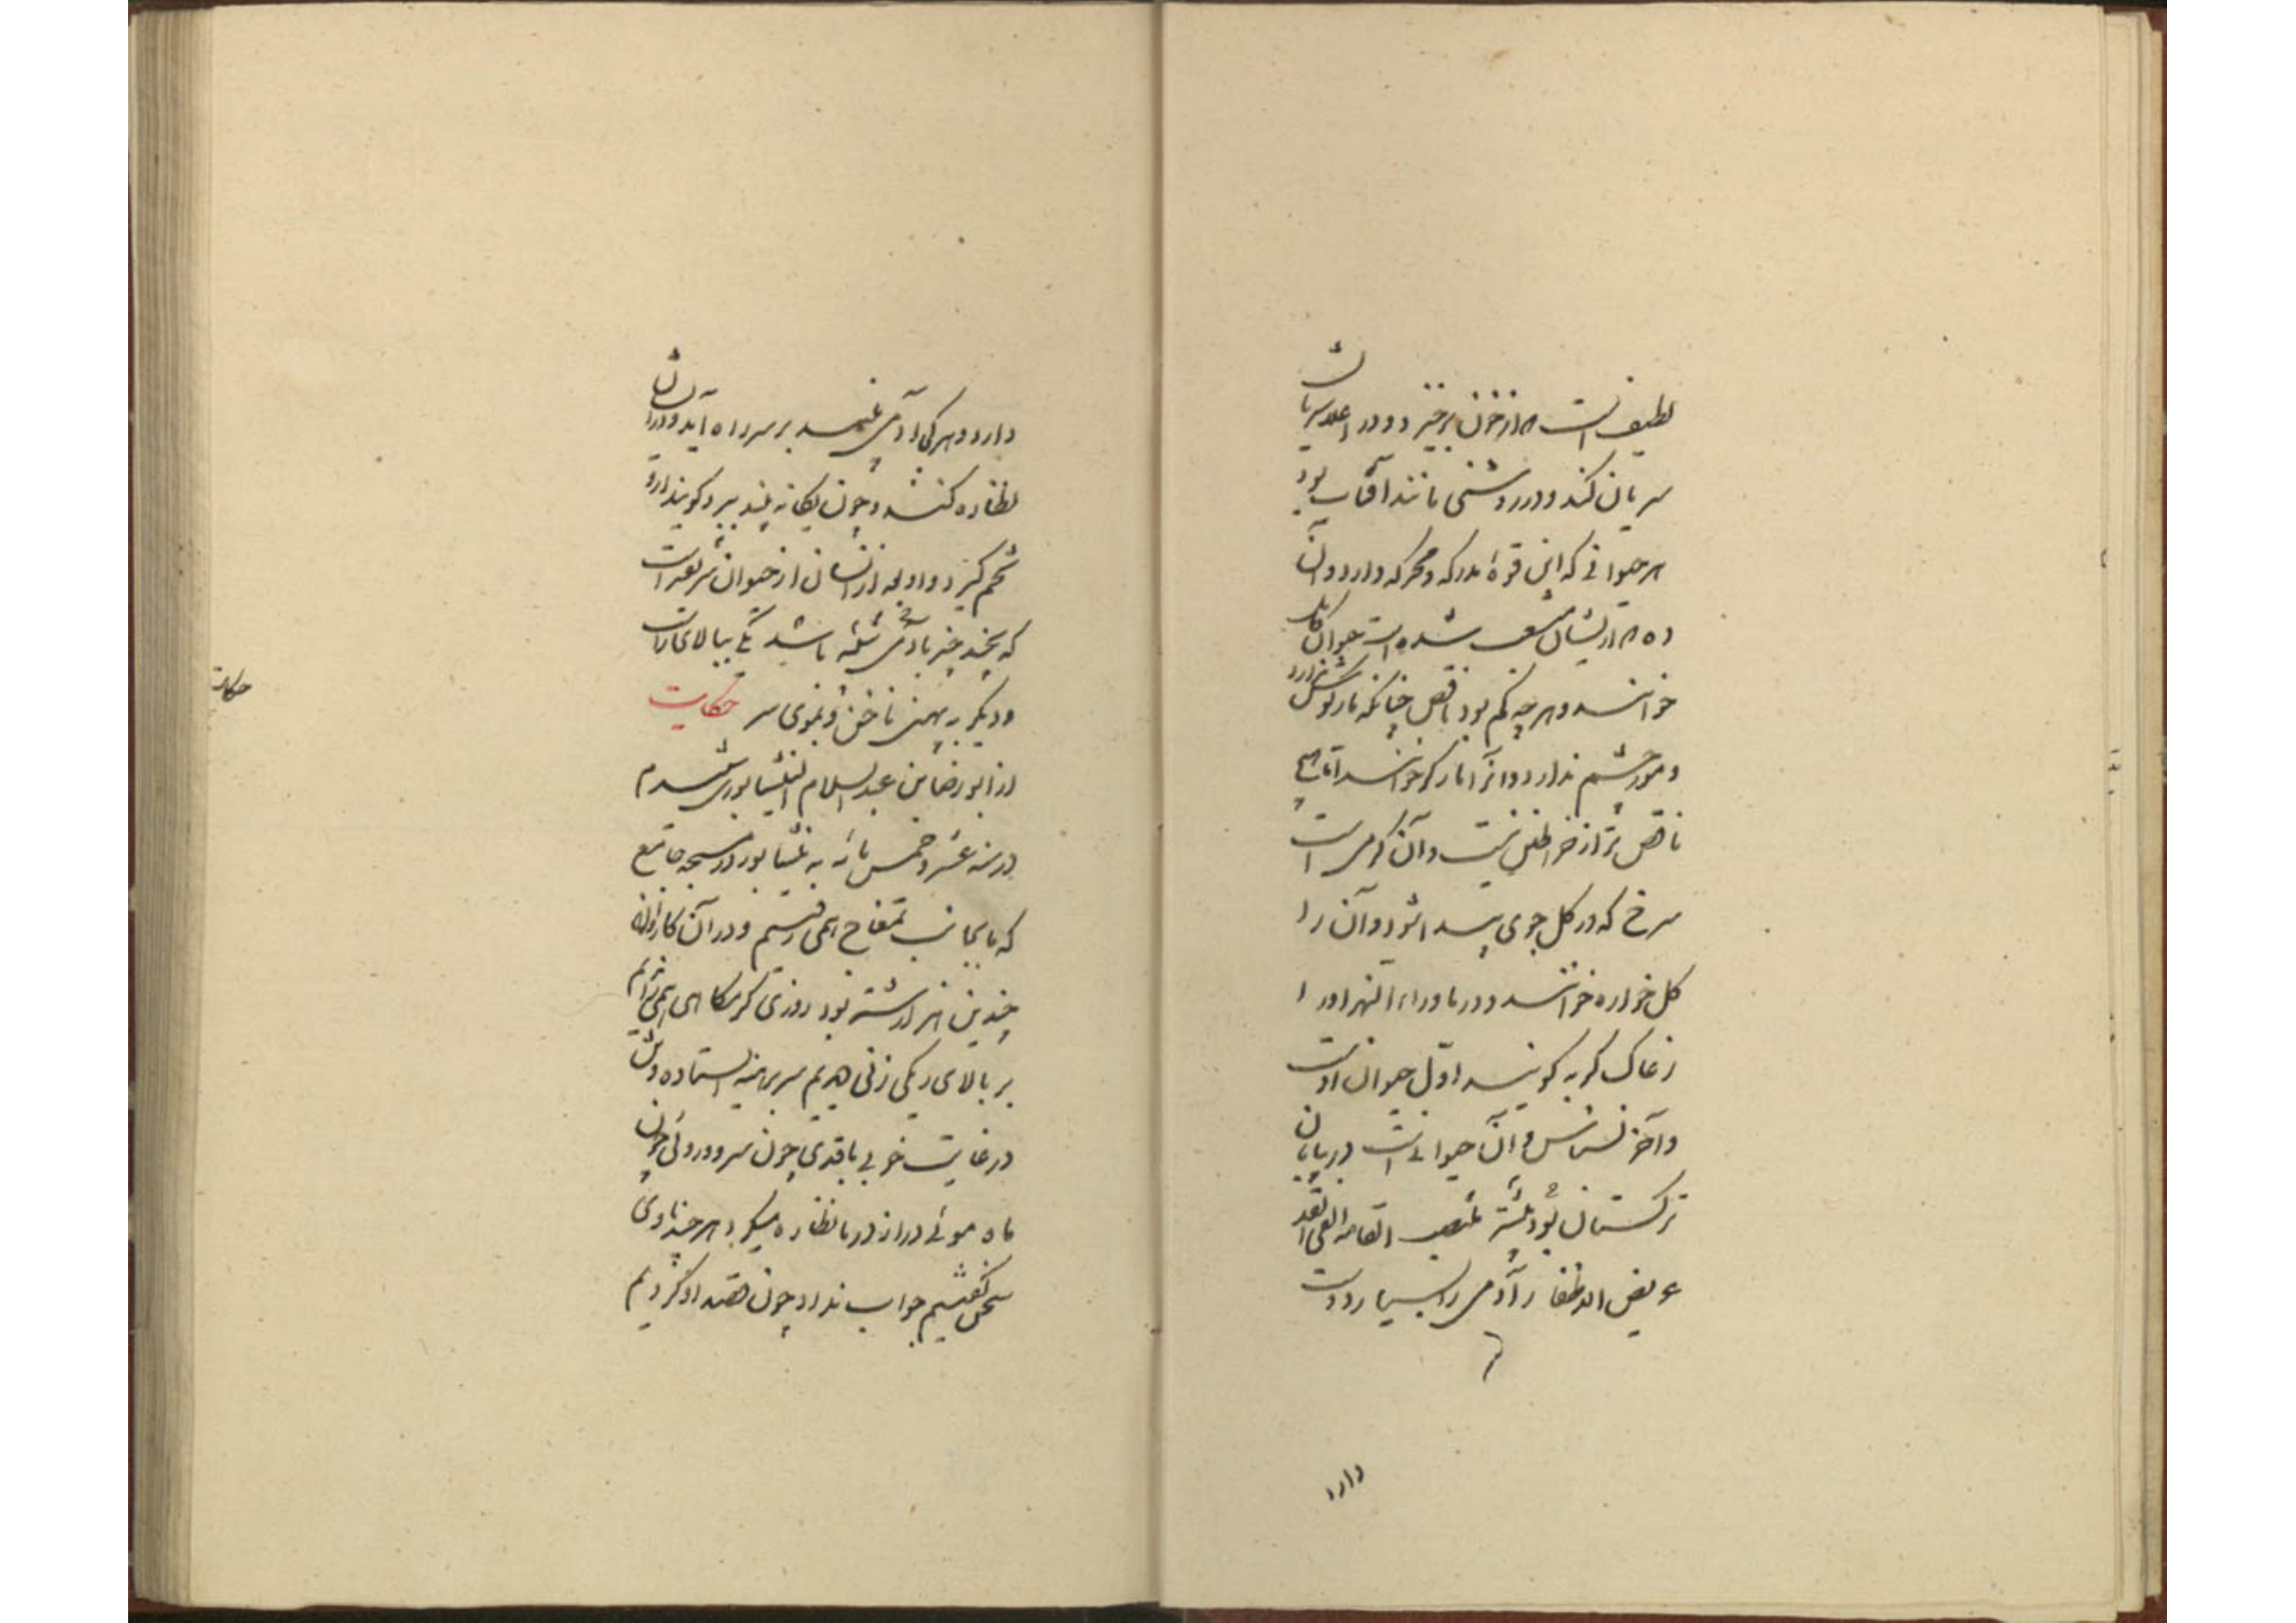 لطیف است که از خون برخیزد و در اعلا شریان
سریان کند و در روشنی مانند آفتاب بود
هر حیوانی که این قوهٔ مدرکه و محرکه دارد و آن
ده که از ایشان منشعب شده است حیوان کامل
خوانند و هرچه کم بود ناقص چنانکه مار گوش ندارد
و مور چشم ندارد و این را مار کر خوانند اما هیچ
ناقص‌تر از خراطین نیست و آن کرمی است
سرخ که در گل جوی پیدا شود و آن را
گل خواره خوانند و در ماوراء النهر او را
زغاک کرمه گویند اول حیوان اوست
و آخر نسناس و آن حیوانی است در بیابان
ترکستان بود منتصب القامه الفی القد
عریض الاظفار آدمی را بسیار دوست
دارد
دارد و هر کجا آدمی بیند بر سر راه آید و در ایشان
نظاره کند و چون یگانه بیند ببرد و گویند از او
تخم گیرد و او بعد از انسان از حیوان شریفتر است
که بچند چیز با آدمی تشبه باشد یکی ببالای راست
و دیگر به پهنی ناخن و بموی سر حکایت
از ابو رضا بن عبد السلام النیشابوری شنیدم
در سنه عشر و خمس مائه به نیشابور در مسجد جامع
که ما بجانب تمغاج همی رفتیم و در آن کاروان
چندین هزار شتر بود روزی گرمگاهی همی راندیم
بر بالای ریگی زنی دیدیم سر برهنه ایستاده و تن
در غایت خوبی با قدی چون سرو و روئی چون
ماه و موئی دراز در ما نظاره میکرد هرچند با وی
سخن گفتیم جواب نداد و چون قصد او کردیم
حکایت